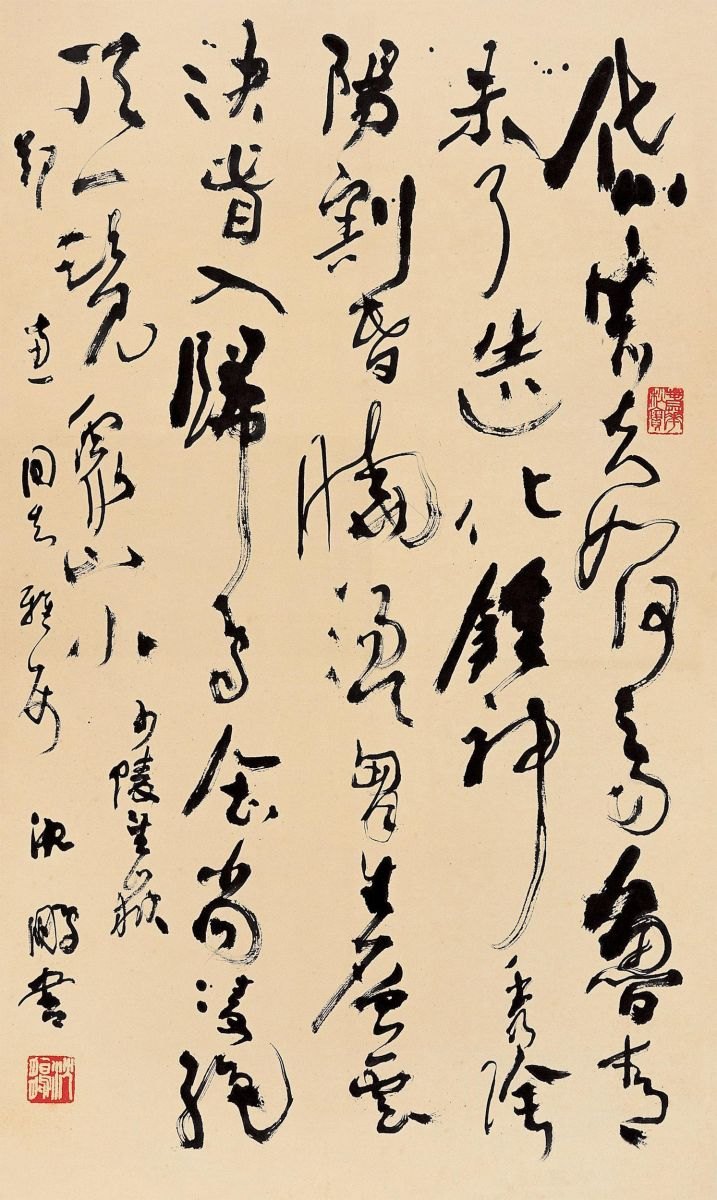 岱宗夫如何齊魯青
未了造化鍾神秀陰
陽割昏曉盪胸生層雲
決眥入歸鳥會當凌絕
頂一覽眾山小
少陵望嶽
鄭惠同志雅屬 沈鵬書
沈鵬